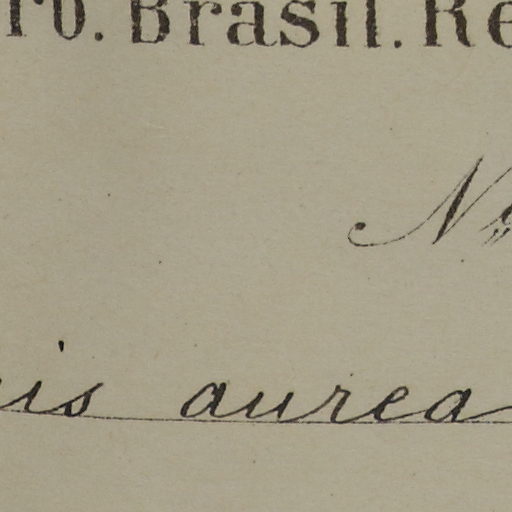 ro. Brasil. Re
N
is aurea